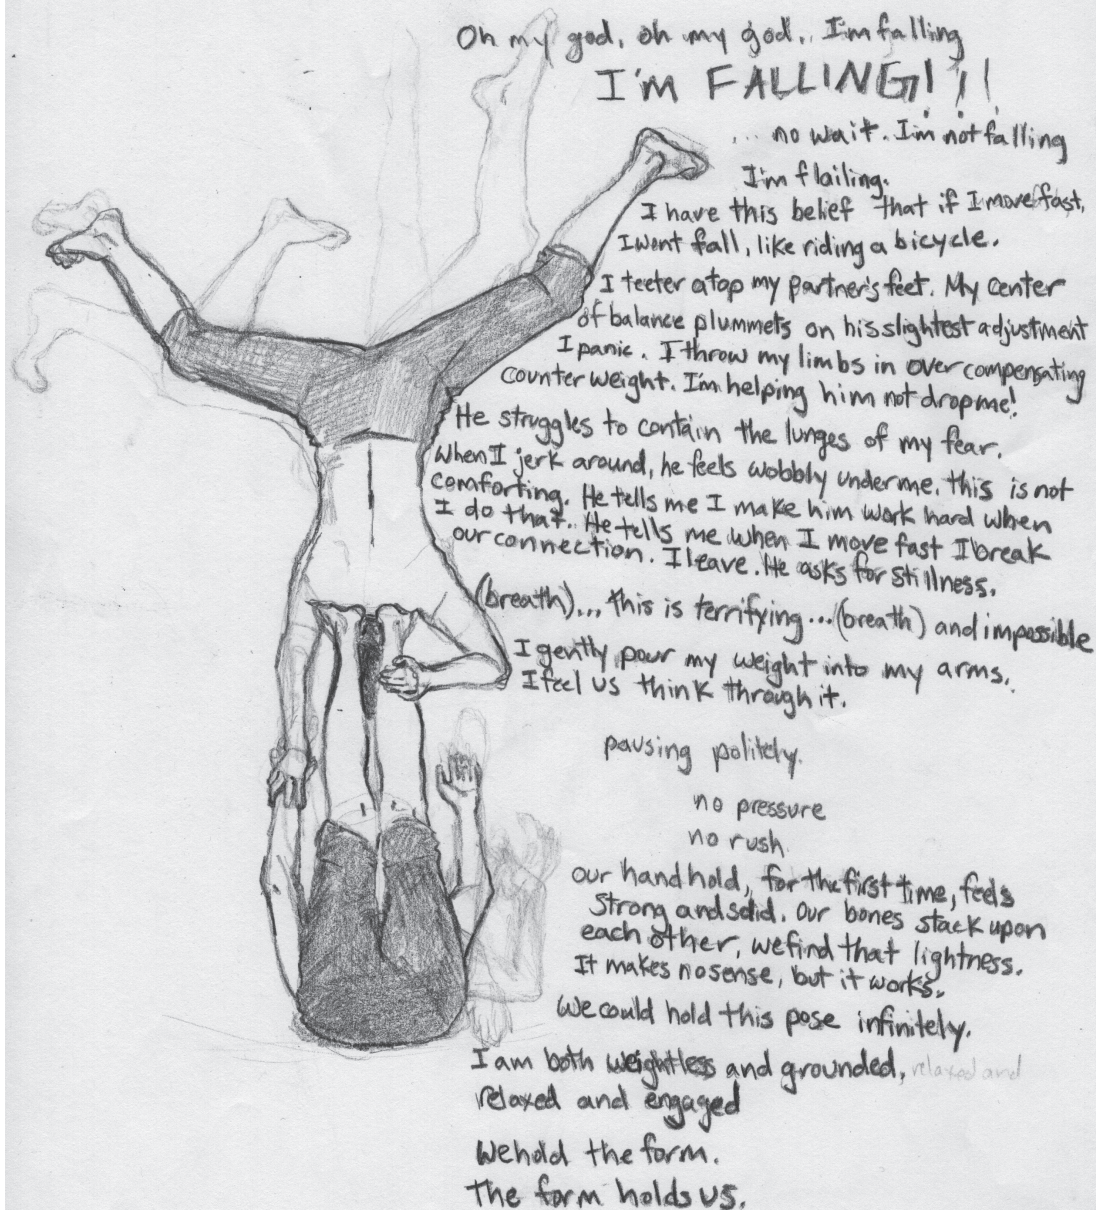 Oh my god, oh my god, I'm falling
I'M FALLING!!!
... no wait. I'm not falling
I'm flailing.
I have this belief that if I move fast,
I wont fall, like riding a bicycle.
I teeter atop my partner's feet. My center
of balance plummets on his slightest adjustment
I panic. I throw my limbs in over compensating
counter weight. I'm helping him not drop me!
He struggles to contain the lunges of my fear.
When I jerk around, he feels wobbly under me. this is not
comforting. He tells me I make him work hard when
I do that. He tells me when I move fast I break
our connection. I leave. He asks for stillness.
(breath)... this is terrifying...(breath) and impossible
I gently pour my weight into my arms.
I feel us think through it.
pausing politely.
no pressure
no rush
our hand hold, for the first time, feels
strong and solid. Our bones stack upon
each other, we find that lightness.
It makes no sense, but it works.
We could hold this pose infinitely.
I am both weightless and grounded, relaxed and
relaxed and engaged
We hold the form.
The form holds us.